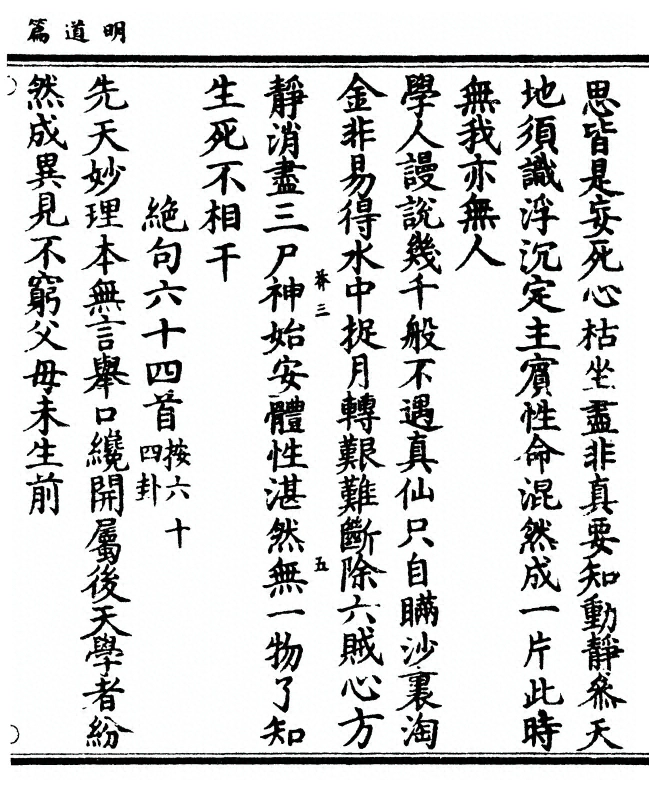 明道篇
思皆是妄死心枯坐盡非真要知動靜叅天
地須識浮沉定主賓性命混然成一片此時
無我亦無人
學人謾說幾千般不遇真仙只自瞞沙裏淘
金非易得水中捉月轉艱難斷除六賊心方
靜消盡三尸神始安體性湛然無一物了知
生死不相干
絶句六十四首按六十四卦
先天妙理本無言舉口纔開屬後天學者紛
然成異見不窮父母未生前
三
五